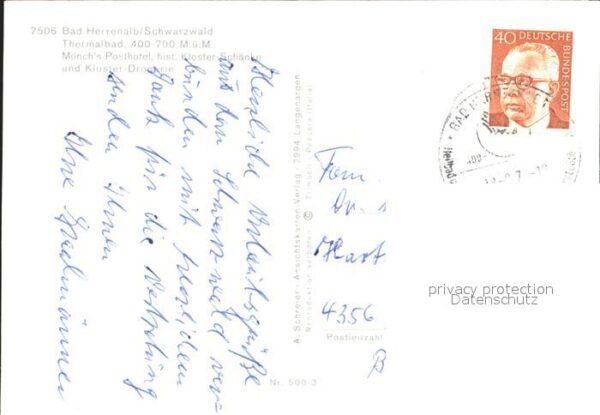 7506 Bad Herrenalb/Schwarzwald
Thermalbad, 400-700 M.ü.M.
Mönch's Posthotel, hist. Kloster-Schänke
und Kloster-Drogerie
Herzliche Urlaubsgrüße
aus dem Schwarzwald ver-
bunden mit herzlichem
Dank für die
senden Ihnen
Ihre
A. Schreier - Ansichtskarten Verlag - 7994 Langenargen
Nr. 500/3
40 DEUTSCHE
BUNDESPOST
BAD HERRENALB
Fam.
Dr.
Hart
4356
Postleitzahl
privacy protection
Datenschutz